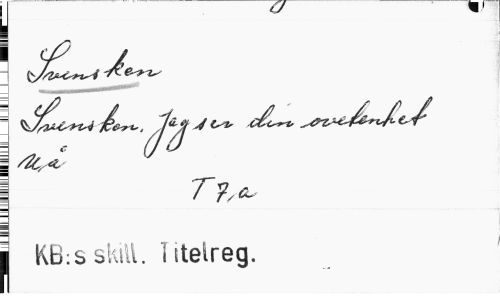 Svensken
Svensken. Jag ser din ovetenhet
U.å
T 7,a
KB:s skill. Titelreg.